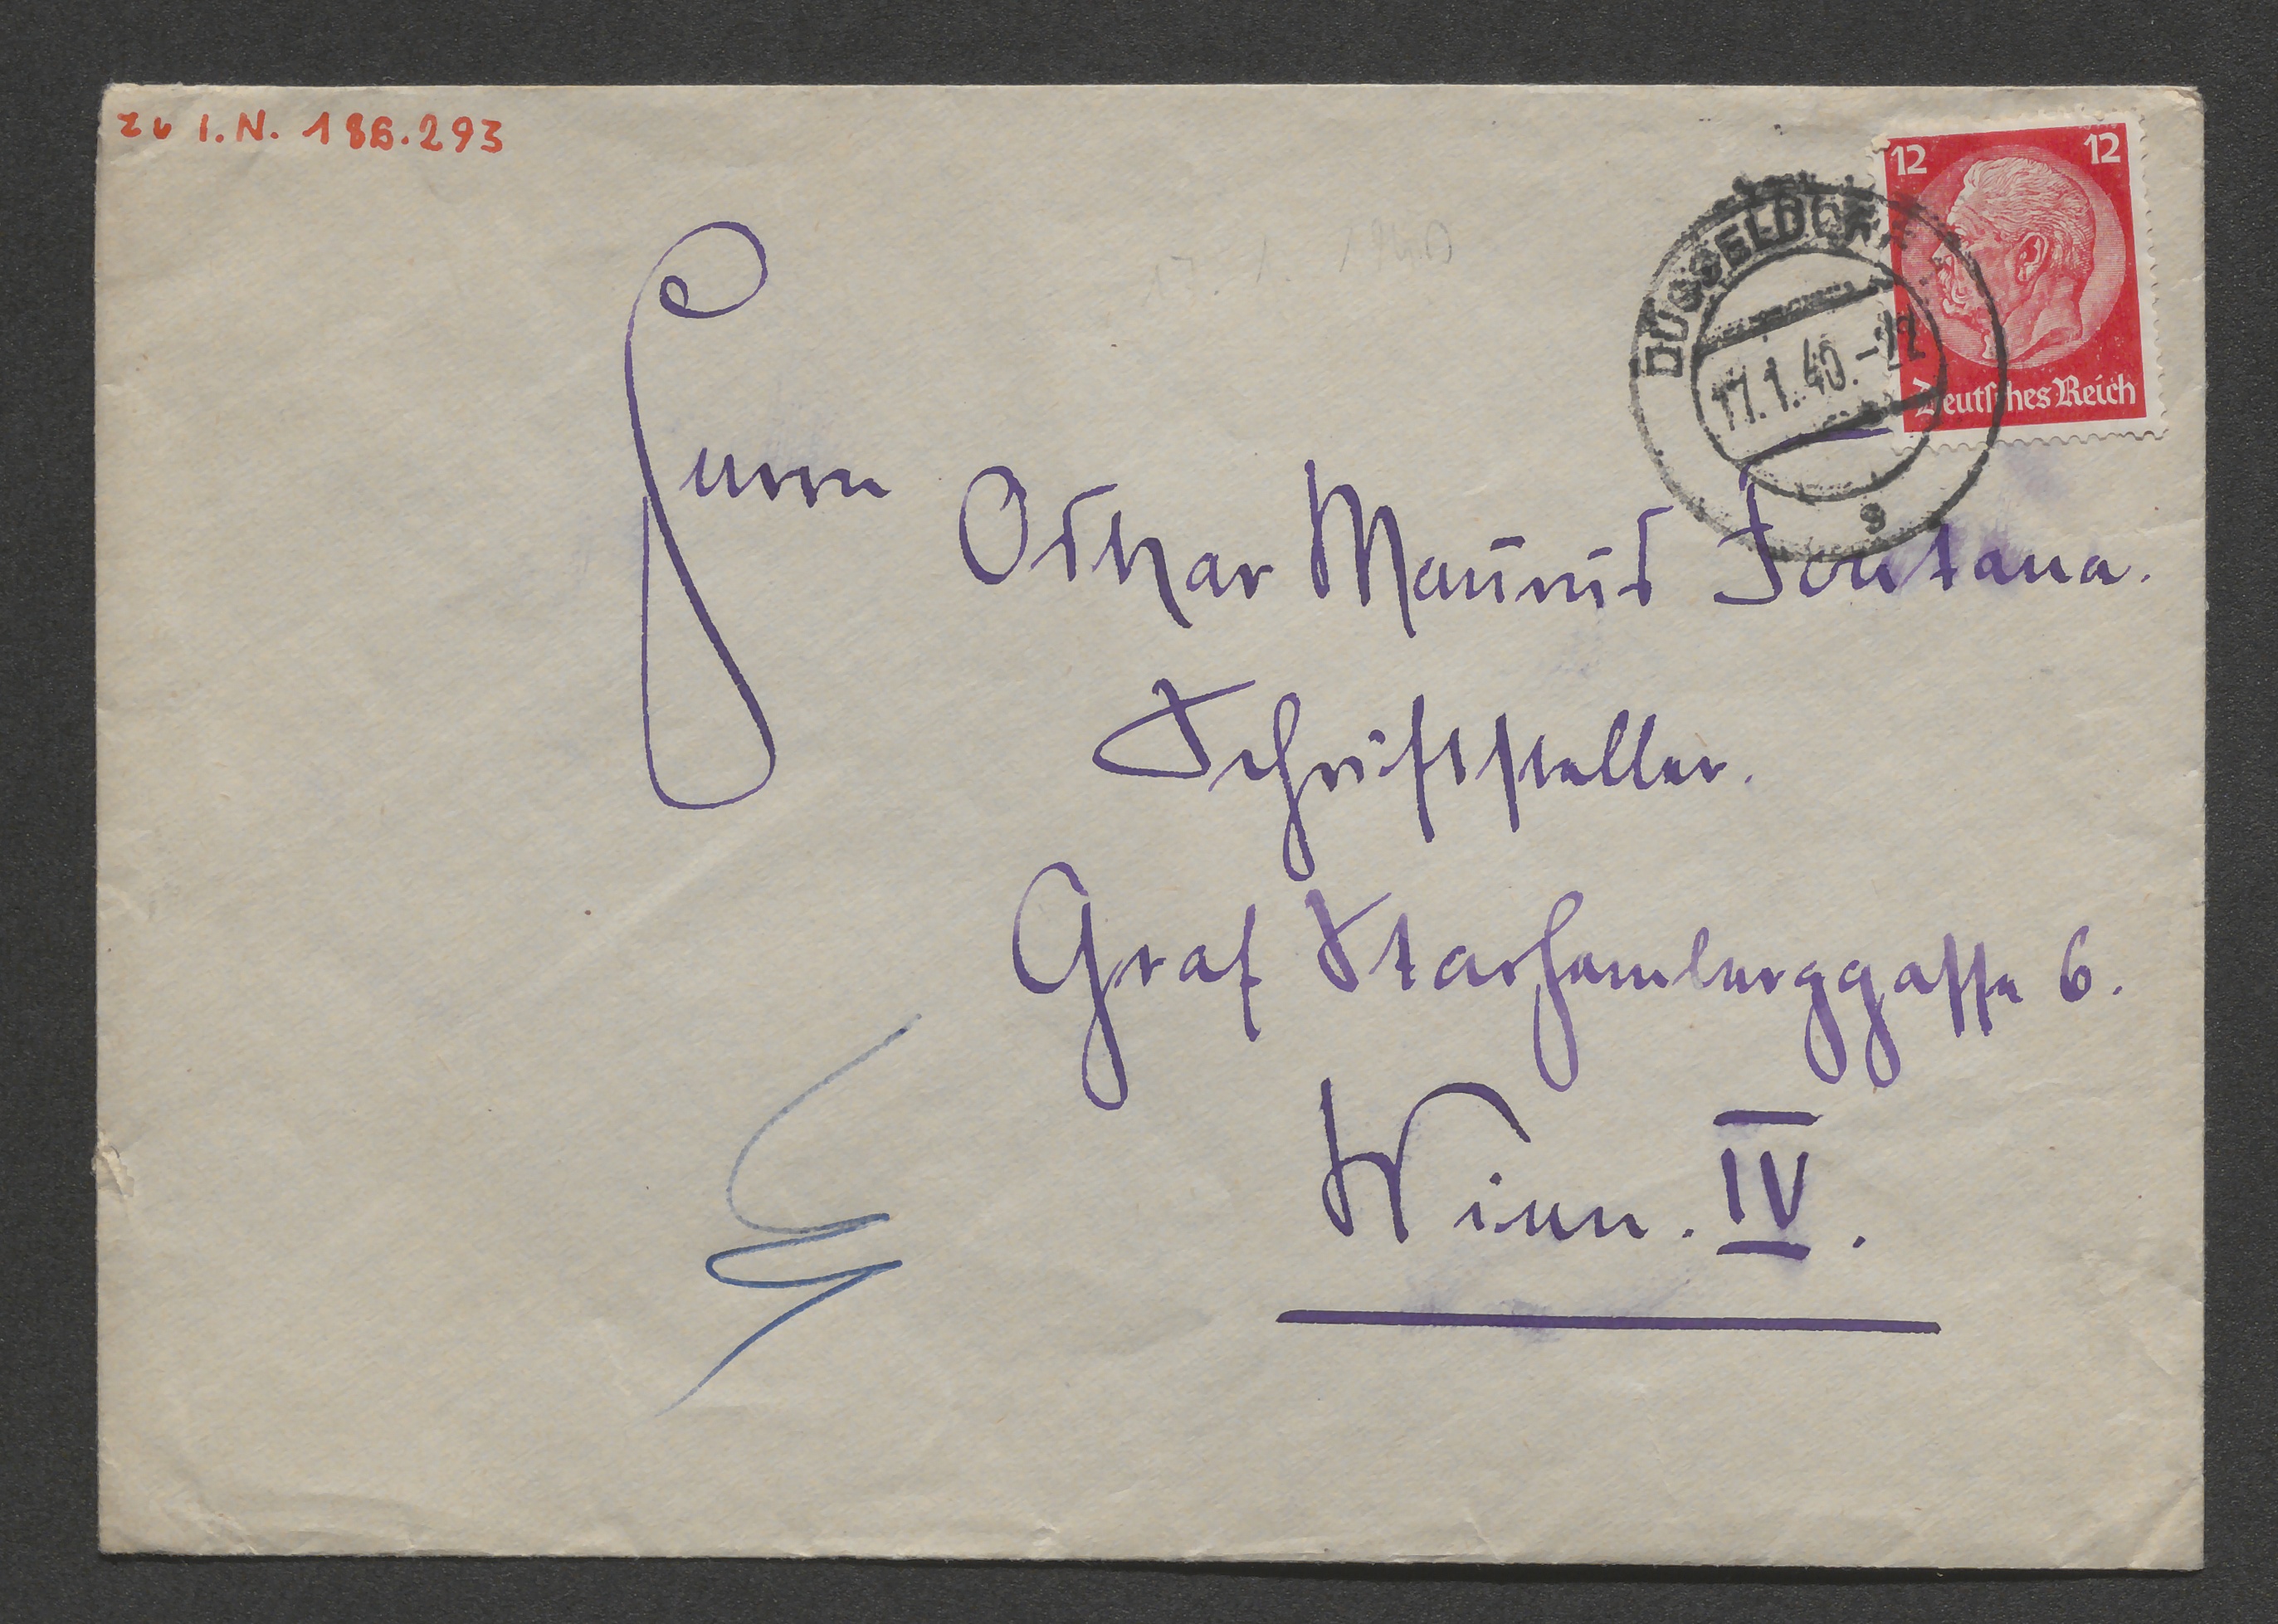 zu I.N. 186.293
17. 1. 1940
12 12
Deutsches Reich
DÜSSELDORF
17.1.40.-22
Herrn
Oskar Maurus Fontana.
Schriftsteller.
Graf Starhemberggasse 6.
Wien. IV.